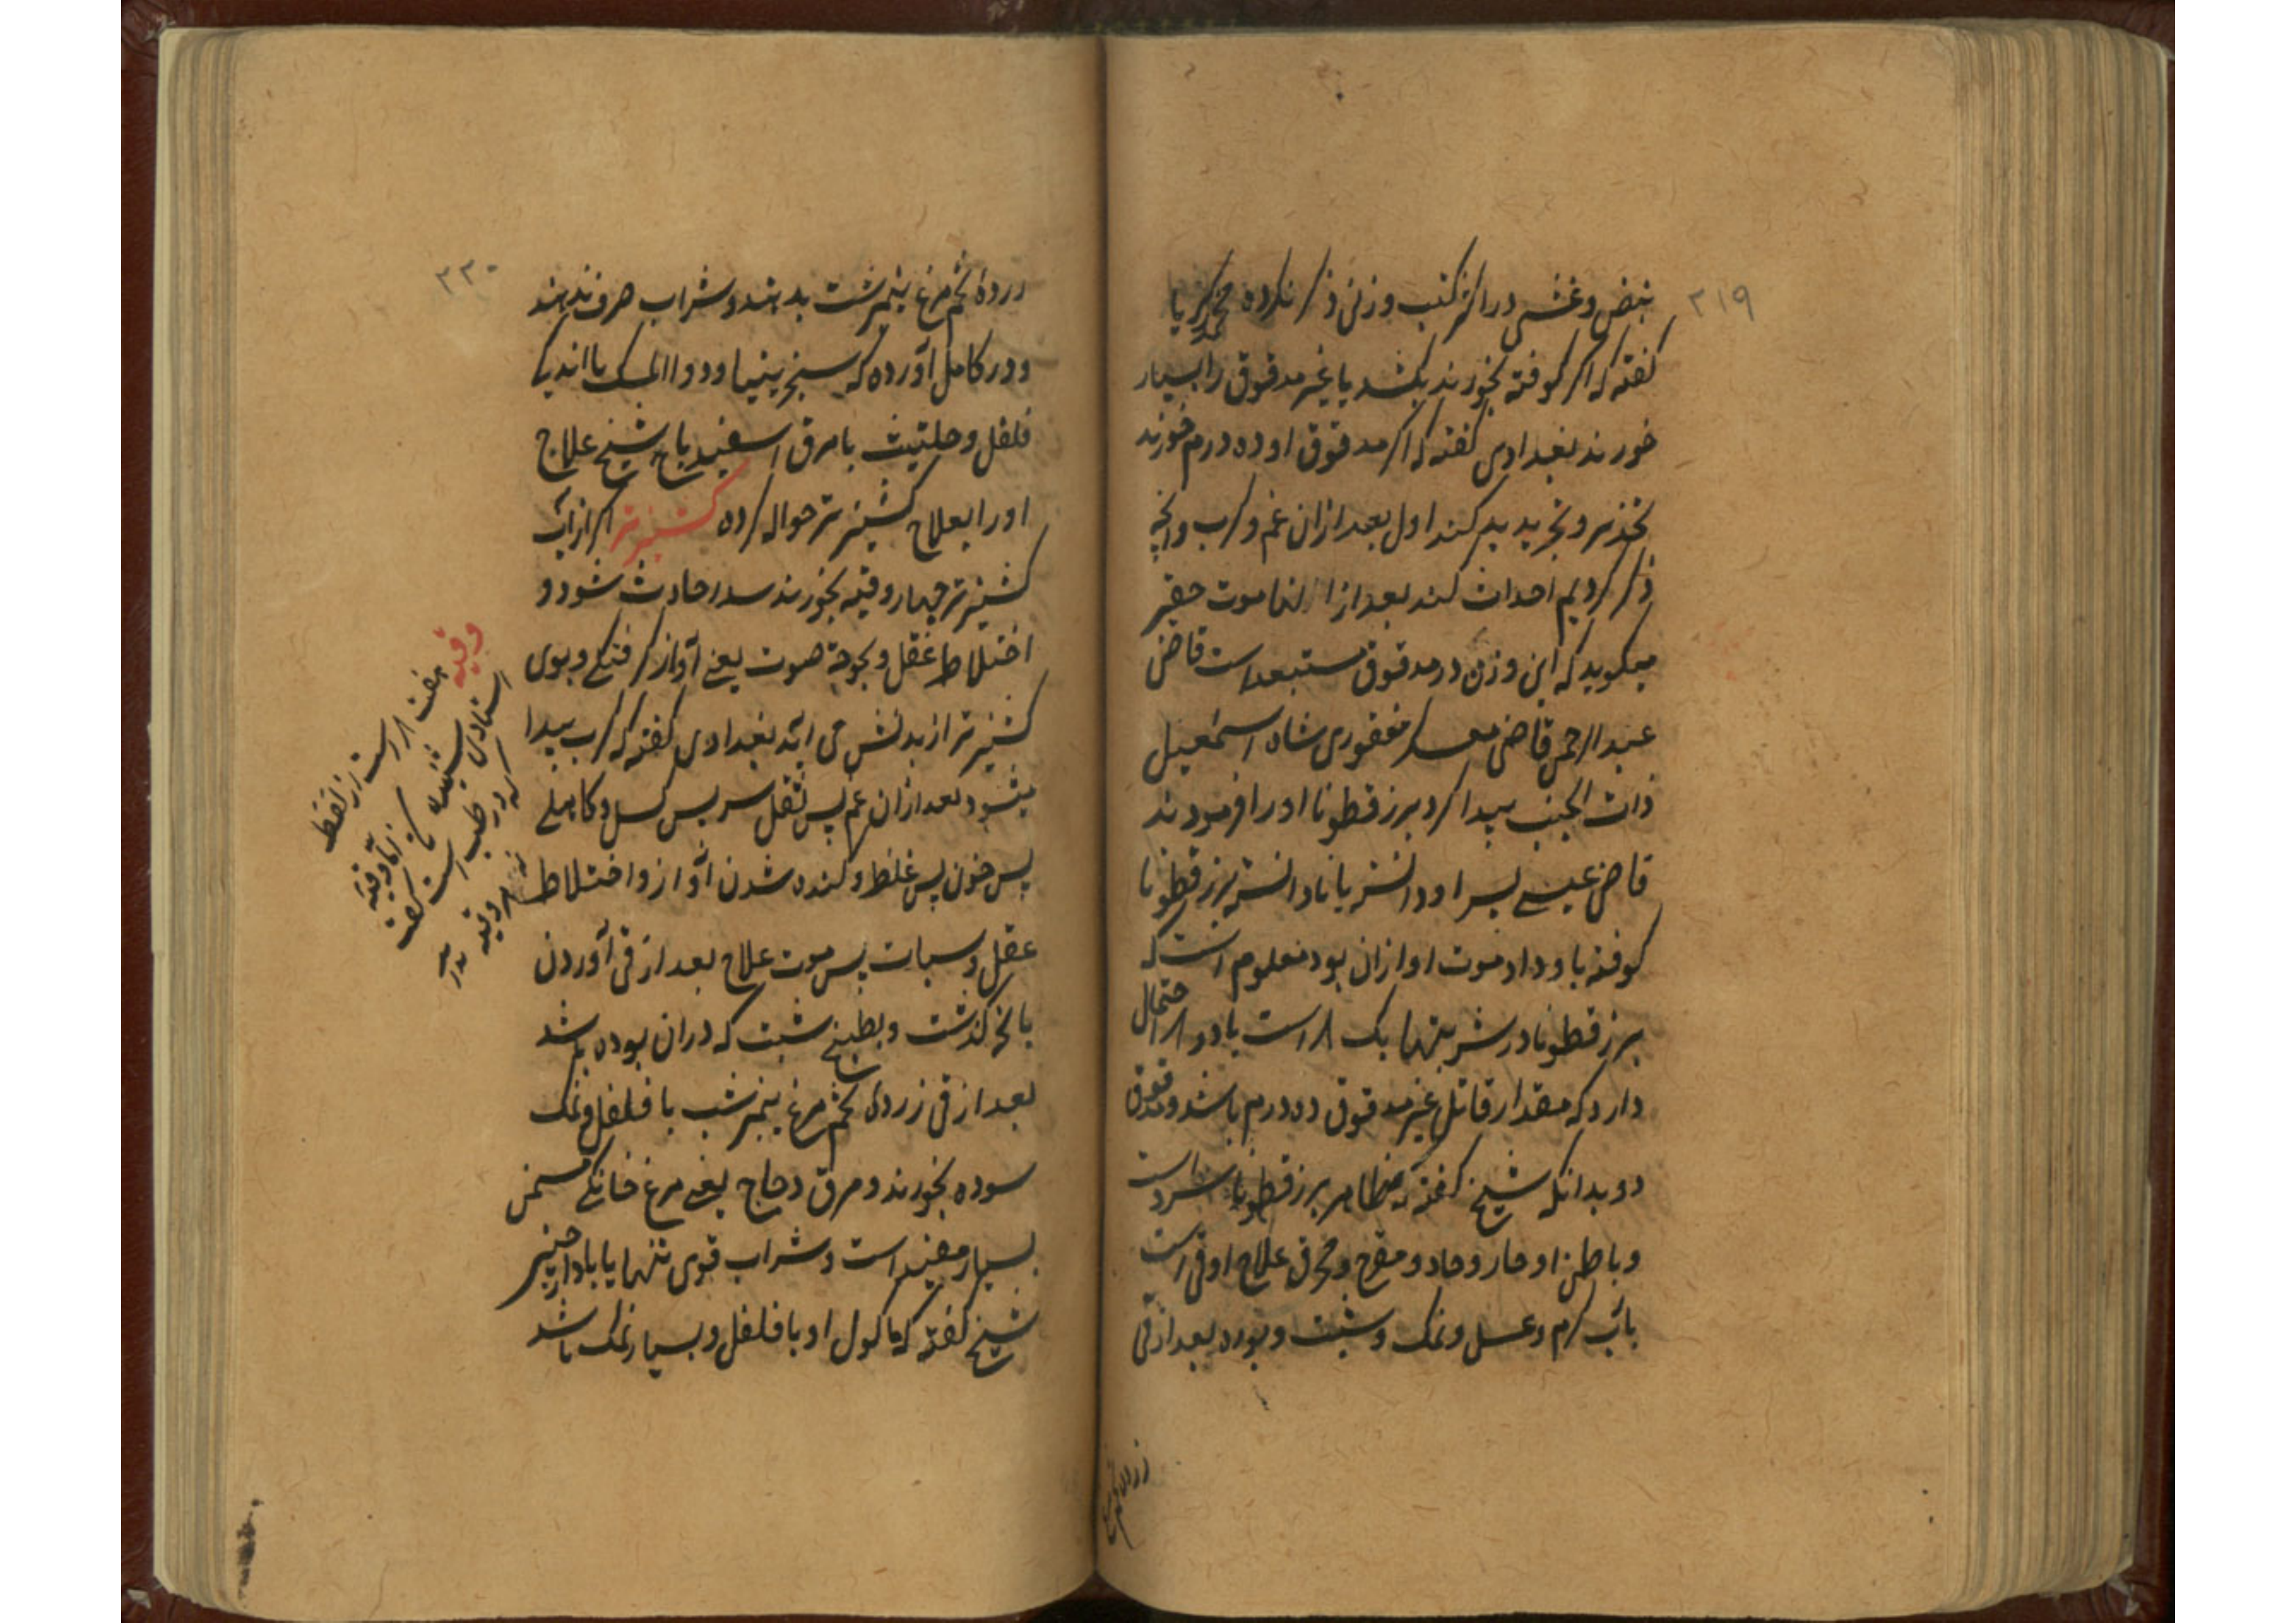 ۲۱۹
نبض و غشی در اکثر کتب وزنی ذکر نکرده محمد زکریا
کفته که اکر کوفته بخورند بکشد یا غیر مدقوق را بسیار
خورند بغدادی کفته که اکر مدقوق او ده درم خورند
تخذیر و تبرید کند اول بعد ازان غم و کرب و انچه
ذکر کردیم احداث کند بعد از انها موت حقیر
میکوید که این وزن در مدقوق مستبعد است قاضی
عبدالرحمن قاضی معسکر مغفوری شاه اسمعیل
ذات الجنب پیدا کرد بزر قطونا او را فرمودند
قاضی عیسی پسر او دانسته یا نادانسته بزر قطونا
کوفته باو داد موت او ازان بود معلوم است که
بزر قطونا در شربتها یک است یا دو احتمال
دارد که مقدار قاتل غیر مدقوق ده درم باشد و مدقوق
دو بدانکه شیخ کفته که ظاهر بزر قطونا سرد است
و باطن او حار و حاد و مقرح و محرق علاج او قی است
بآب کرم و عسل و نمک و شبت و بوره بعد از قی
زرده تخم مرغ
۲۲۰
زرده تخم مرغ نیمرشت بدهند و شراب صرف بدهند
و در کامل آورده که سنجرینیا و دواالمسک با اندکی
فلفل و حلتیت با مرق اسفیدباج شیخ علاج
او را بعلاج کشنیز تر حواله کرده کشنیز تر اکر از آب
کشنیز تر چهار وقیه بخورند سدر حادث شود و
اختلاط عقل و بحوحة صوت یعنی آواز کرفتکی و بوی
کشنیز تر از بدنش می اید بغدادی کفته که کرب پیدا
میشود بعد ازان غم پس ثقل سر پس کسل و کاهلی
پس خون پس غلظ و کنده شدن آواز و اختلاط
عقل و سبات پس موت علاج بعد از قی آوردن
بانچه کذشت و بطبیخ شبت که دران بوده باشد
بعد از قی زرده تخم مرغ نیمرشت با فلفل و نمک
سوده بخورند و مرق دجاج یعنی مرغ خانکی مسمن
بسیار مفید است و شراب قوی تنها یا با دارچینی
شیخ کفته که ماکول او با فلفل و بسیار نمک باشد
وقیه
هفت است از لفظ
استادی شنیده
که در طب است کفت